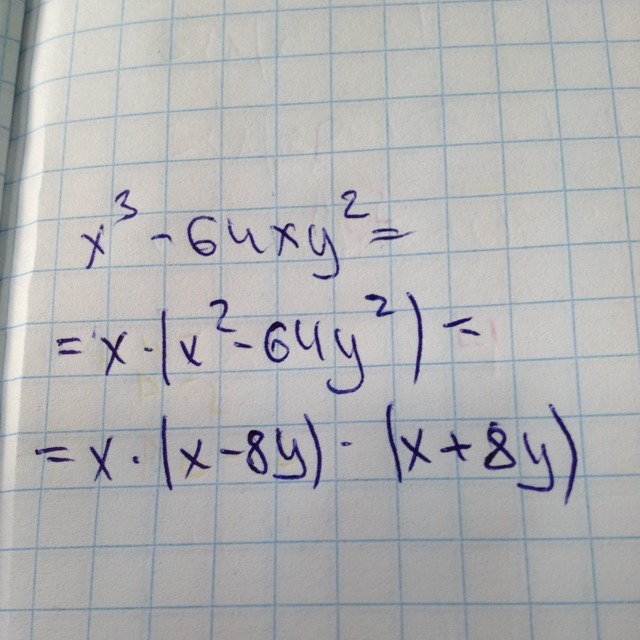 x³ - 64xy² =
= x · (x² - 64y²) =
= x · (x - 8y) · (x + 8y)